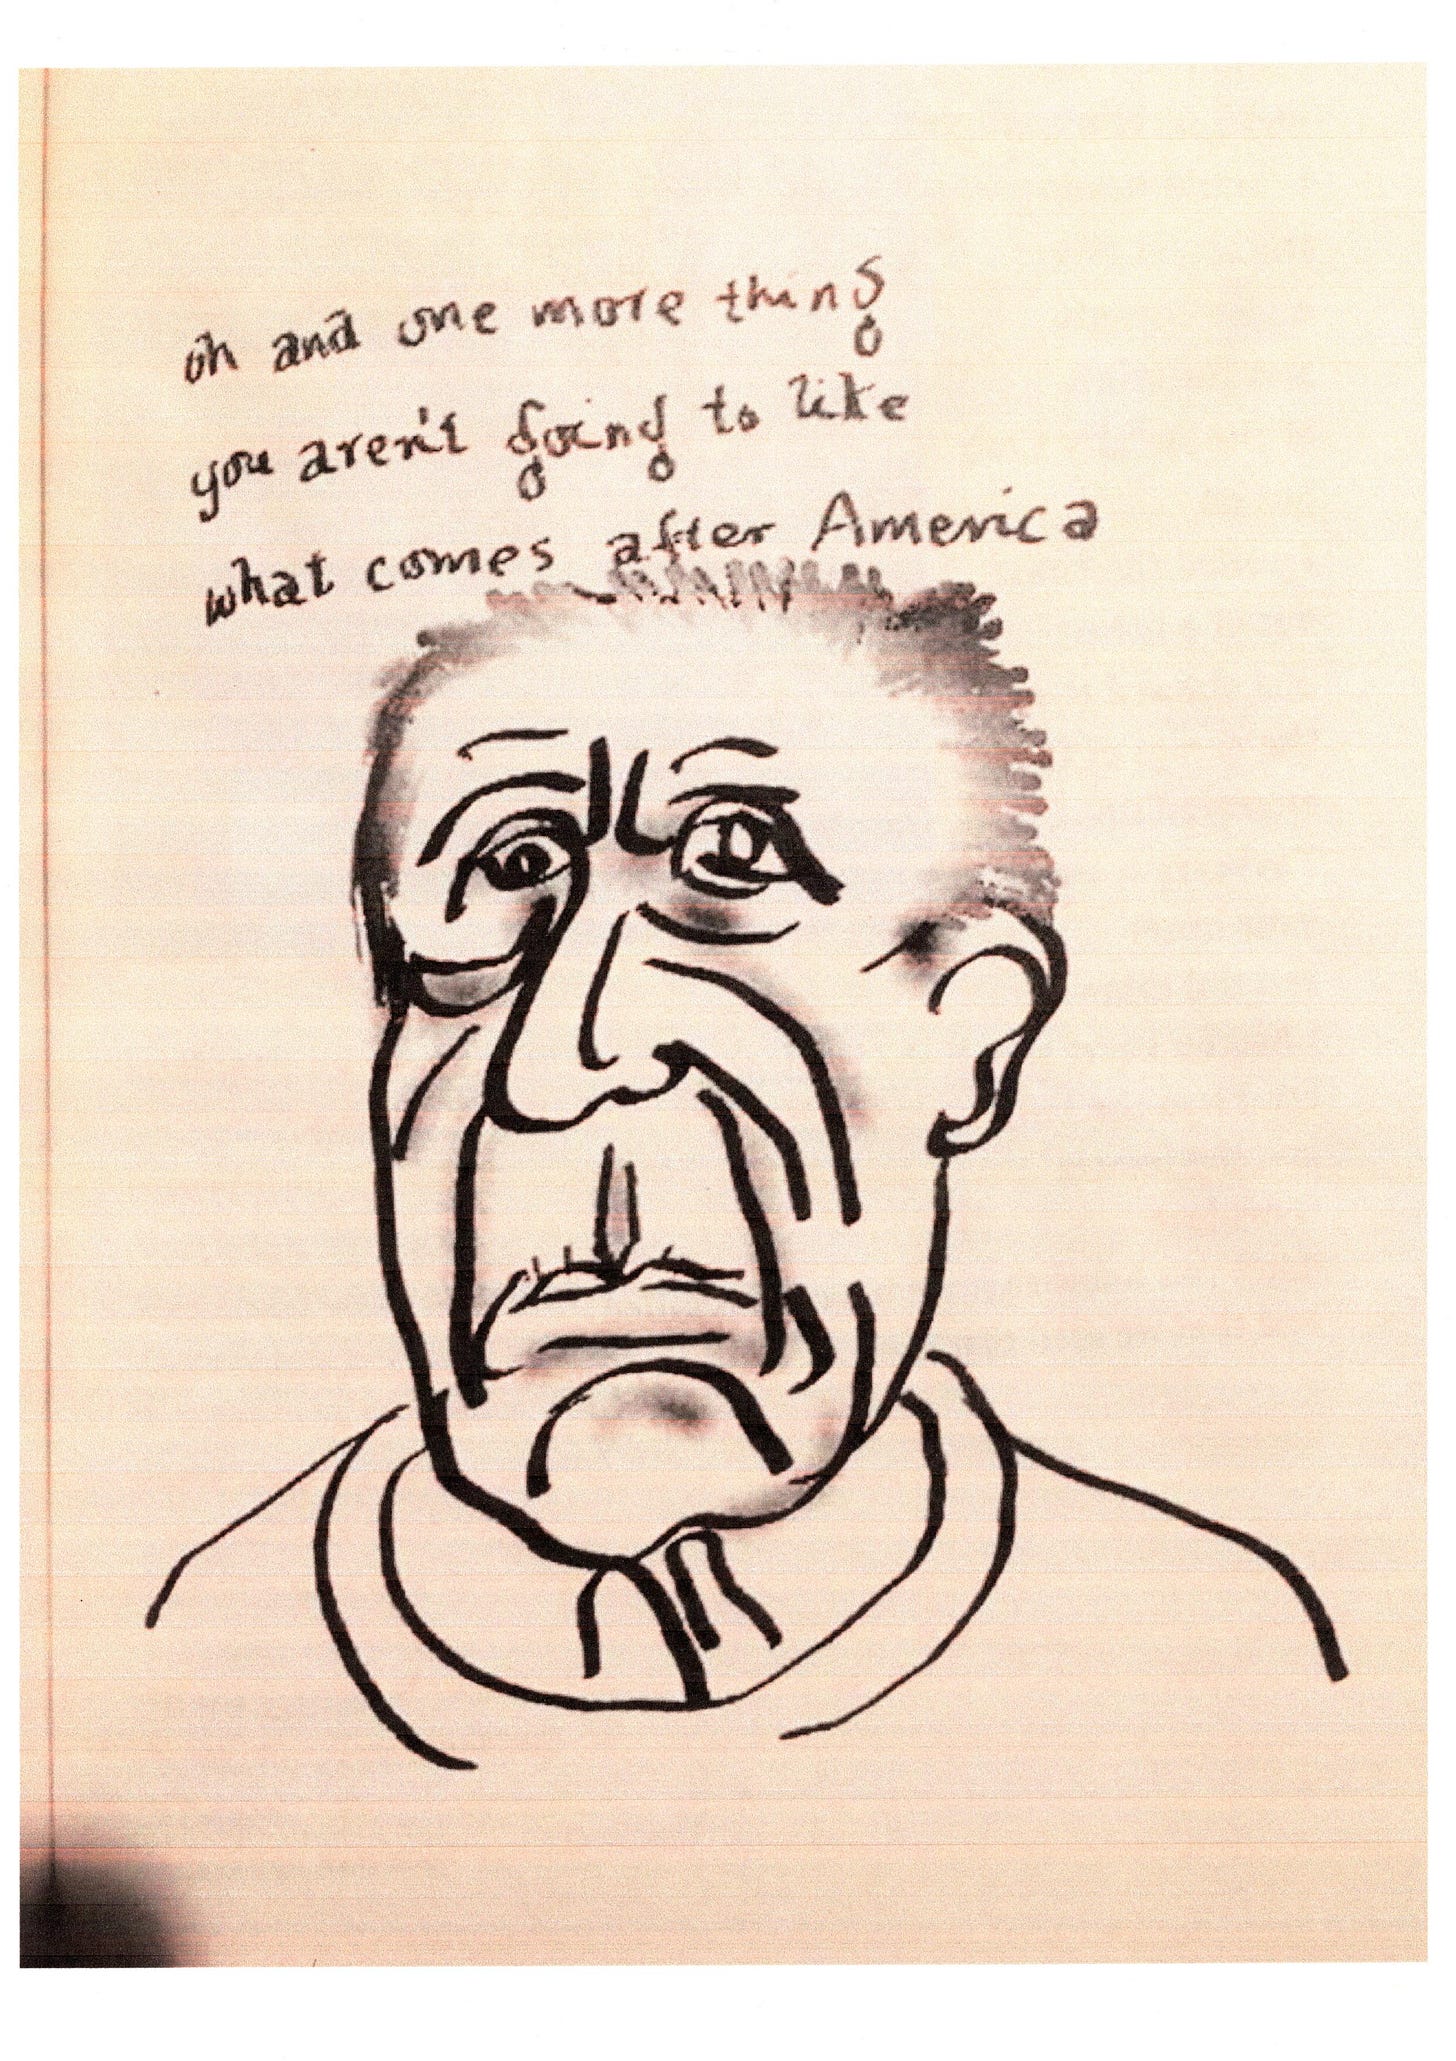 oh and one more thing
you aren't going to like
what comes after America